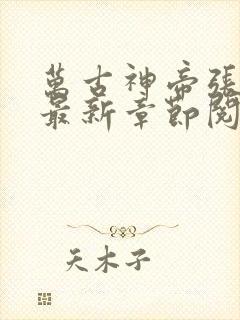 萬古神帝張
最新章節閱
天木子